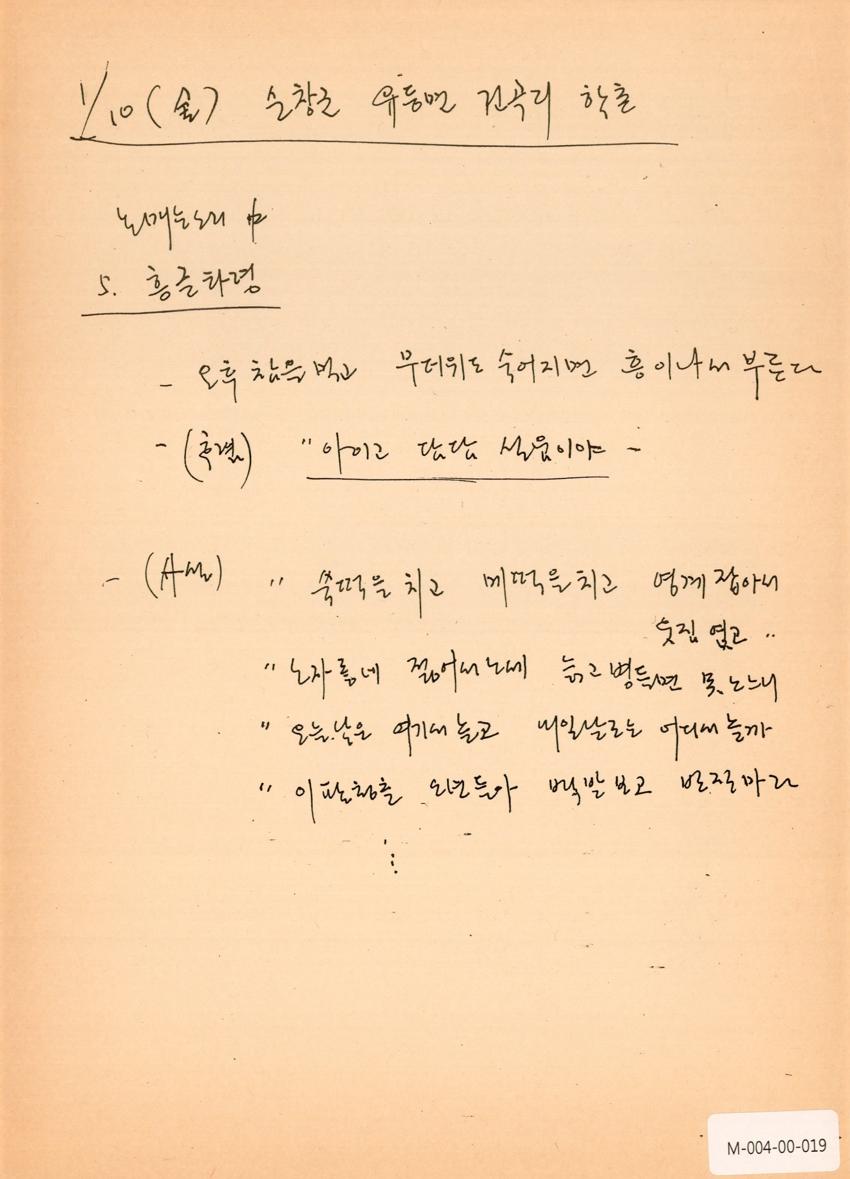 1/10 (金) 순창군 유등면 건곡리 학촌
논매는소리 中
5. 흥글타령
- 오후 참을 먹고 무더위도 숙어지면 흥이나서 부른다
- (후렴) " 아이고 답답 설움이야 -
- (사설) " 쑥떡을 치고 메떡을 치고 영계 잡아서
웃짐 얹고 "
" 노자 젊어서 노세 늙고 병들면 못 노느니
" 오늘날은 여기서 놀고 내일날로는 어디서 놀까
" 이팔청춘 소년들아 백발보고 마라
⋮
M-004-00-019